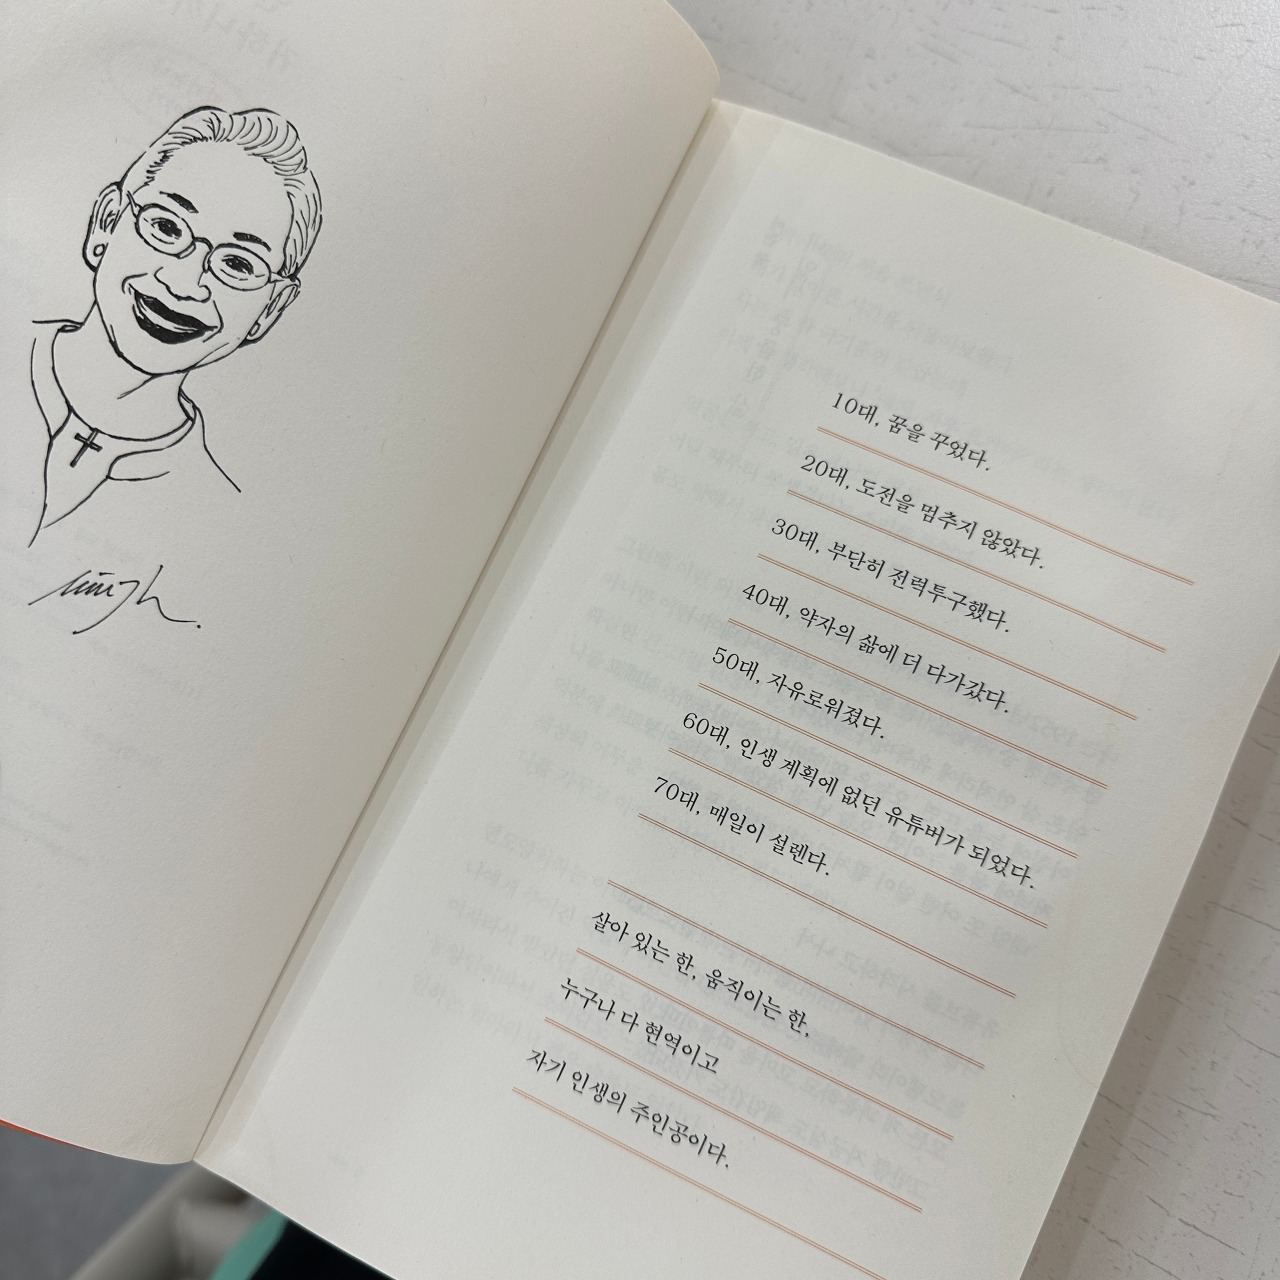 10대, 꿈을 꾸었다.
20대, 도전을 멈추지 않았다.
30대, 부단히 전력투구했다.
40대, 약자의 삶에 더 다가갔다.
50대, 자유로워졌다.
60대, 인생 계획에 없던 유튜버가 되었다.
70대, 매일이 설렌다.
살아 있는 한, 움직이는 한,
누구나 다 현역이고
자기 인생의 주인공이다.